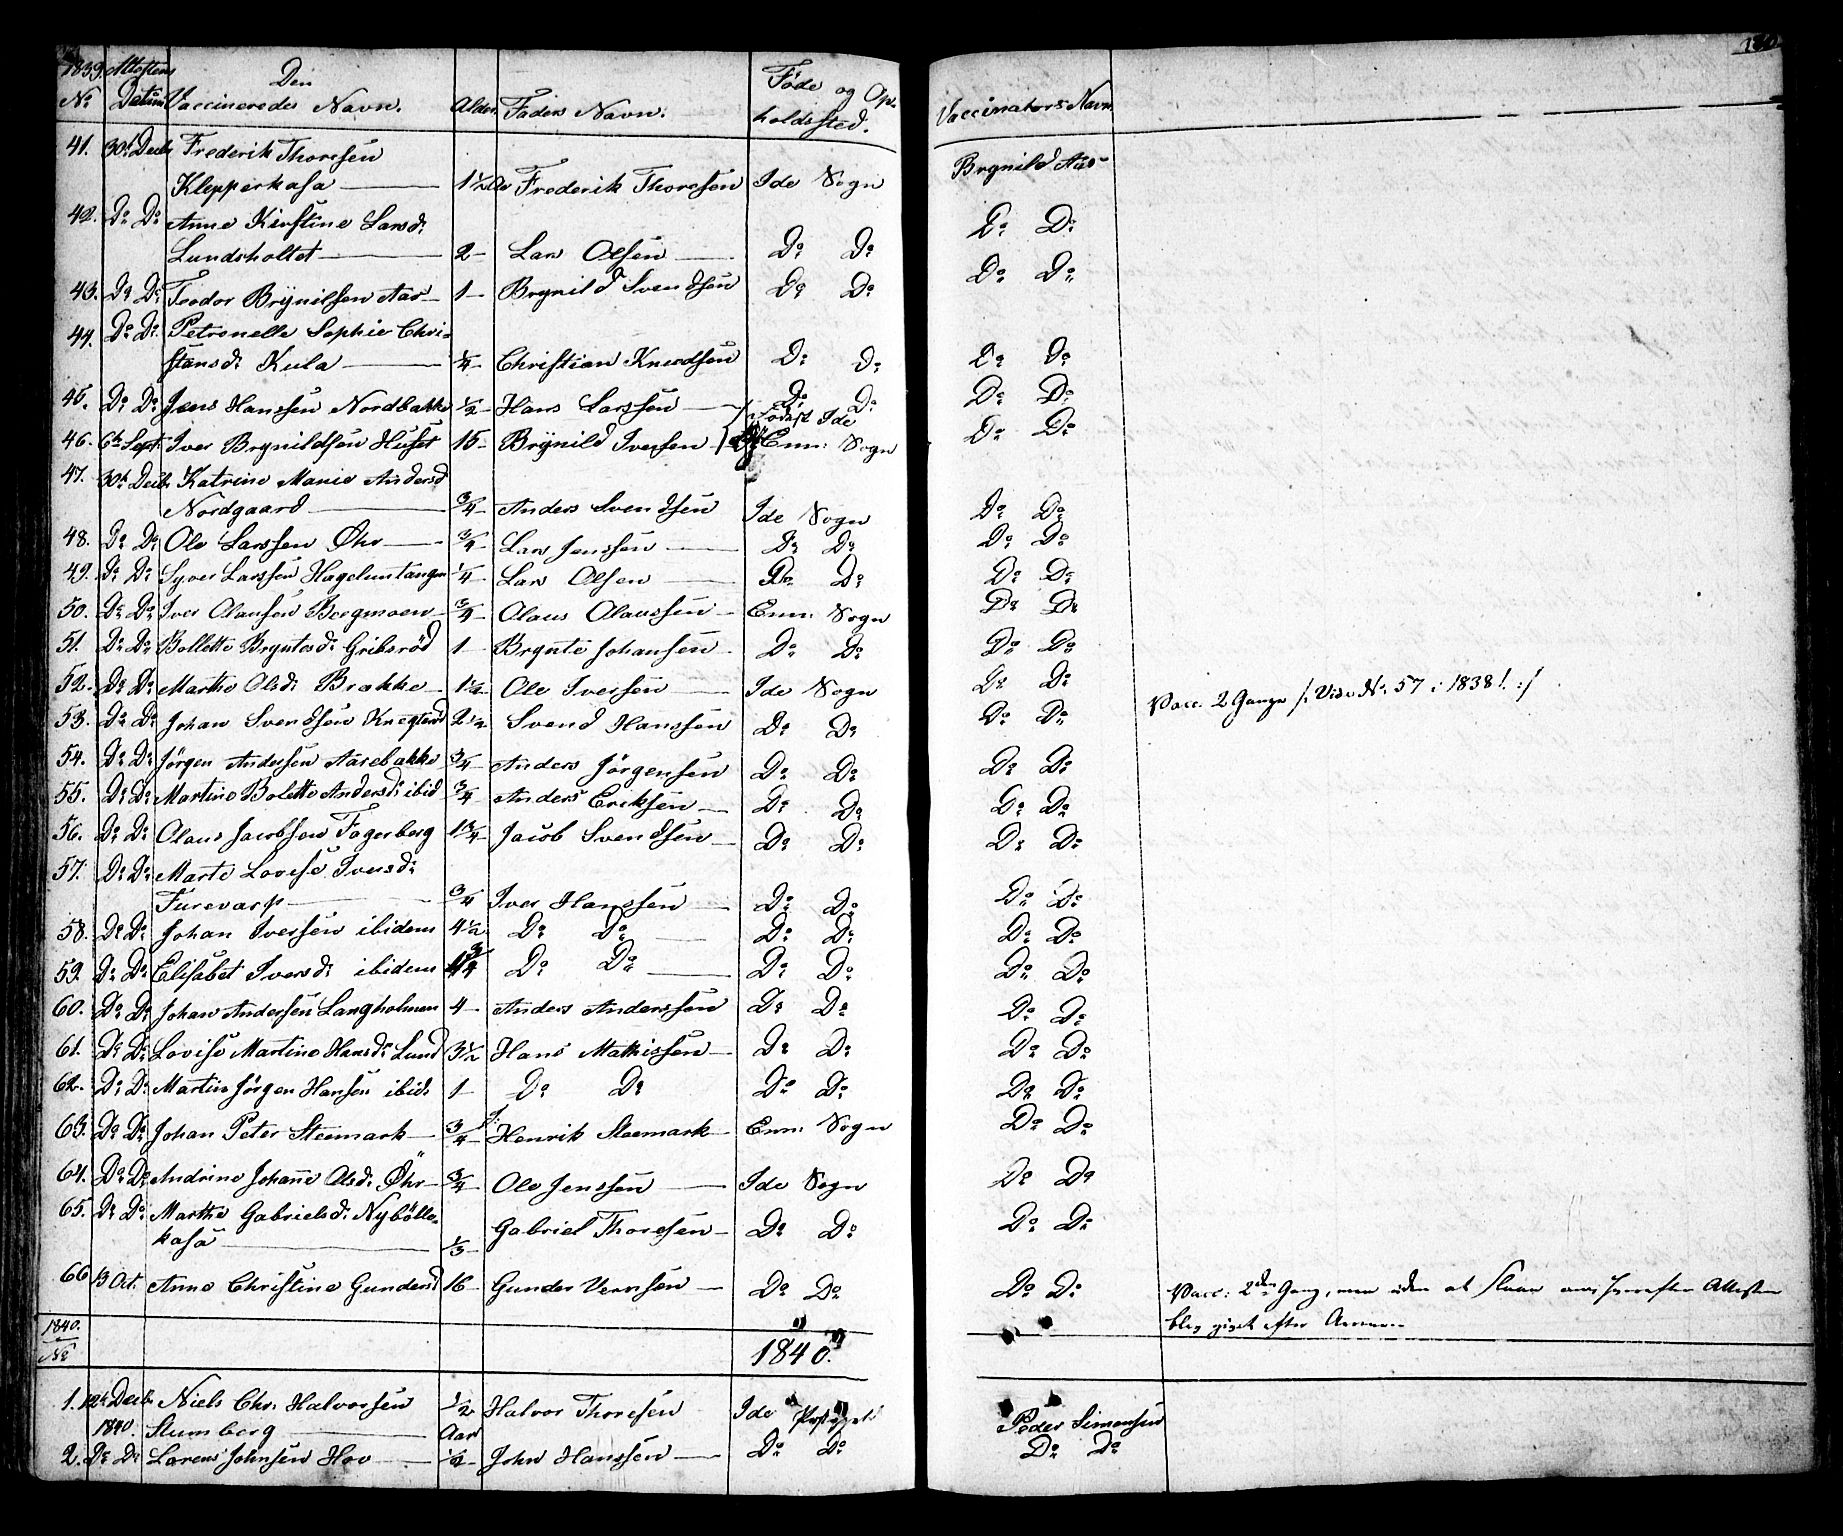 1839. Attestens Den Føde og Op-
No Datum Vaccineredes Navn. Alder. Faders Navn. holdssted. Vaccinators Navn.
41. 30te Decbr Frederik Thoresen
Klepperkasa — 1 1/2 Frederik Thoresen Ide Sogn Brynild Aas
42. Do Do Anne Kirstine Larsd:
Lundsholtet — 2 — Lars Olsen — Do Do Do Do
43. Do Do Teodor Brynilsen Aas — 1 — Brynild Svendsen Do Do Do Do
44. Do Do Petronelle Sophie Chri-
stiansd: Kula — 1/4 — Christian Knudsen Do Do Do Do
45. Do Do Jens Hanssen Nordbakke 1/2 — Hans Larssen — Do Do Do Do
født i Ide
46. 6te Sept: Iver Brynildsen Huset 15 — Brynild Iversen Enn: Sogn Do Do
47. 30te Decbr Katrine Marie Andersd
Nordgaard — 3/4 — Anders Svendsen Ide Sogn Do Do
48. Do Do Ole Larssen Øhr — 3/4 — Lars Jenssen — Do Do Do Do
49. Do Do Syver Larssen Hageluntangen 1/4 — Lars Olsen — Do Do Do Do
50. Do Do Iver Olaussen Bergmoen — 3/4 — Olaus Olaussen — Enn: Sogn Do Do
51. Do Do Bollette Bryntesd: Gribsröd 1 — Brynte Johansen — Do Do Do Do
52. Do Do Marthe Olsd: Brække — 1 1/2 — Ole Iversen — Ide Sogn Do Do Vacc. 2 Gange /: Vide No 57 i 1838! :/
53. Do Do Johan Svendsen 2 1/2 — Svend Hanssen Do Do Do Do
54. Do Do Jörgen Andersen Aarebakke 3/4 — Anders Jörgensen Do Do Do Do
55. Do Do Martine Bolette Andersd: ibid 3/4 — Anders Eriksen — Do Do Do Do
56. Do Do Olaus Jacobsen Fagerberg 1 3/4 — Jacob Svendsen — Do Do Do Do
57. Do Do Marte Lovise Iversd:
Furevarp — 3/4 Iver Hanssen — Do Do Do Do
58. Do Do Johan Iverssen ibidem 4 1/2 Do Do — Do Do Do Do
59. Do Do Elisabet Iversd: ibidem Do Do — Do Do Do Do
60. Do Do Johan Andersen Langholmen 4 — Anders Anderssen Do Do Do Do
61. Do Do Lovise Martine Hansd: Lund 3 1/2 Hans Mathissen — Do Do Do Do
62. Do Do Martin Jörgen Hansen ibid: 1 — Do Do Do Do Do Do
63. Do Do Johan Peter Steemark — 3/4 — Henrik Steemark — Enn: Sogn Do Do
64. Do Do Andrine Johanne Olsd: Øhr — 3/4 — Ole Jenssen — Ide Sogn Do Do
65. Do Do Marthe Gabrielsd: Nybölle-
kasa — 1/3 — Gabriel Thoresen — Do Do Do Do
66 13 Oct. Anne Christine Gundersd 16 — Gunder — Do Do Do Do Vacc: 2den Gang, men uden at slaae an; Attesten
blev givet efter
1840.
No 1840.
1. 12te Decbr Niels Chr: Halvorsen 1/2 Halvor Thoresen Ide Peder Simensen
1840. Slumberg — Aar
2. Do Do Larens Johnsen Hov — 1/2 — John Hanssen — Do Do Do Do